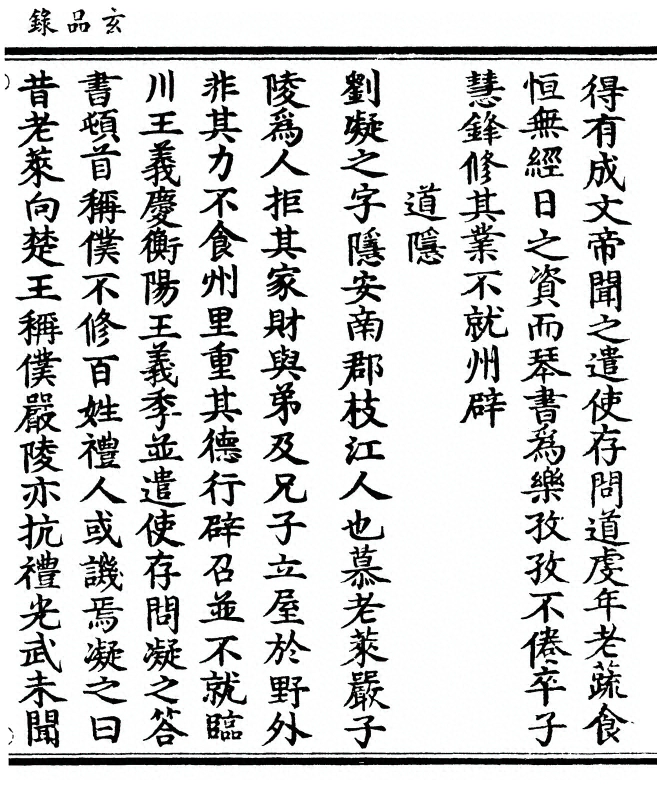 玄品錄
得有成文帝聞之遣使存問道虔年老蔬食
恒無經日之資而琴書為樂孜孜不倦卒子
慧鋒修其業不就州辟
道隱
劉凝之字隱安南郡枝江人也慕老萊嚴子
陵為人拒其家財與弟及兄子立屋於野外
非其力不食州里重其德行辟召並不就臨
川王義慶衡陽王義季並遣使存問凝之答
書頓首稱僕不修百姓禮人或譏焉凝之曰
昔老萊向楚王稱僕嚴陵亦抗禮光武未聞